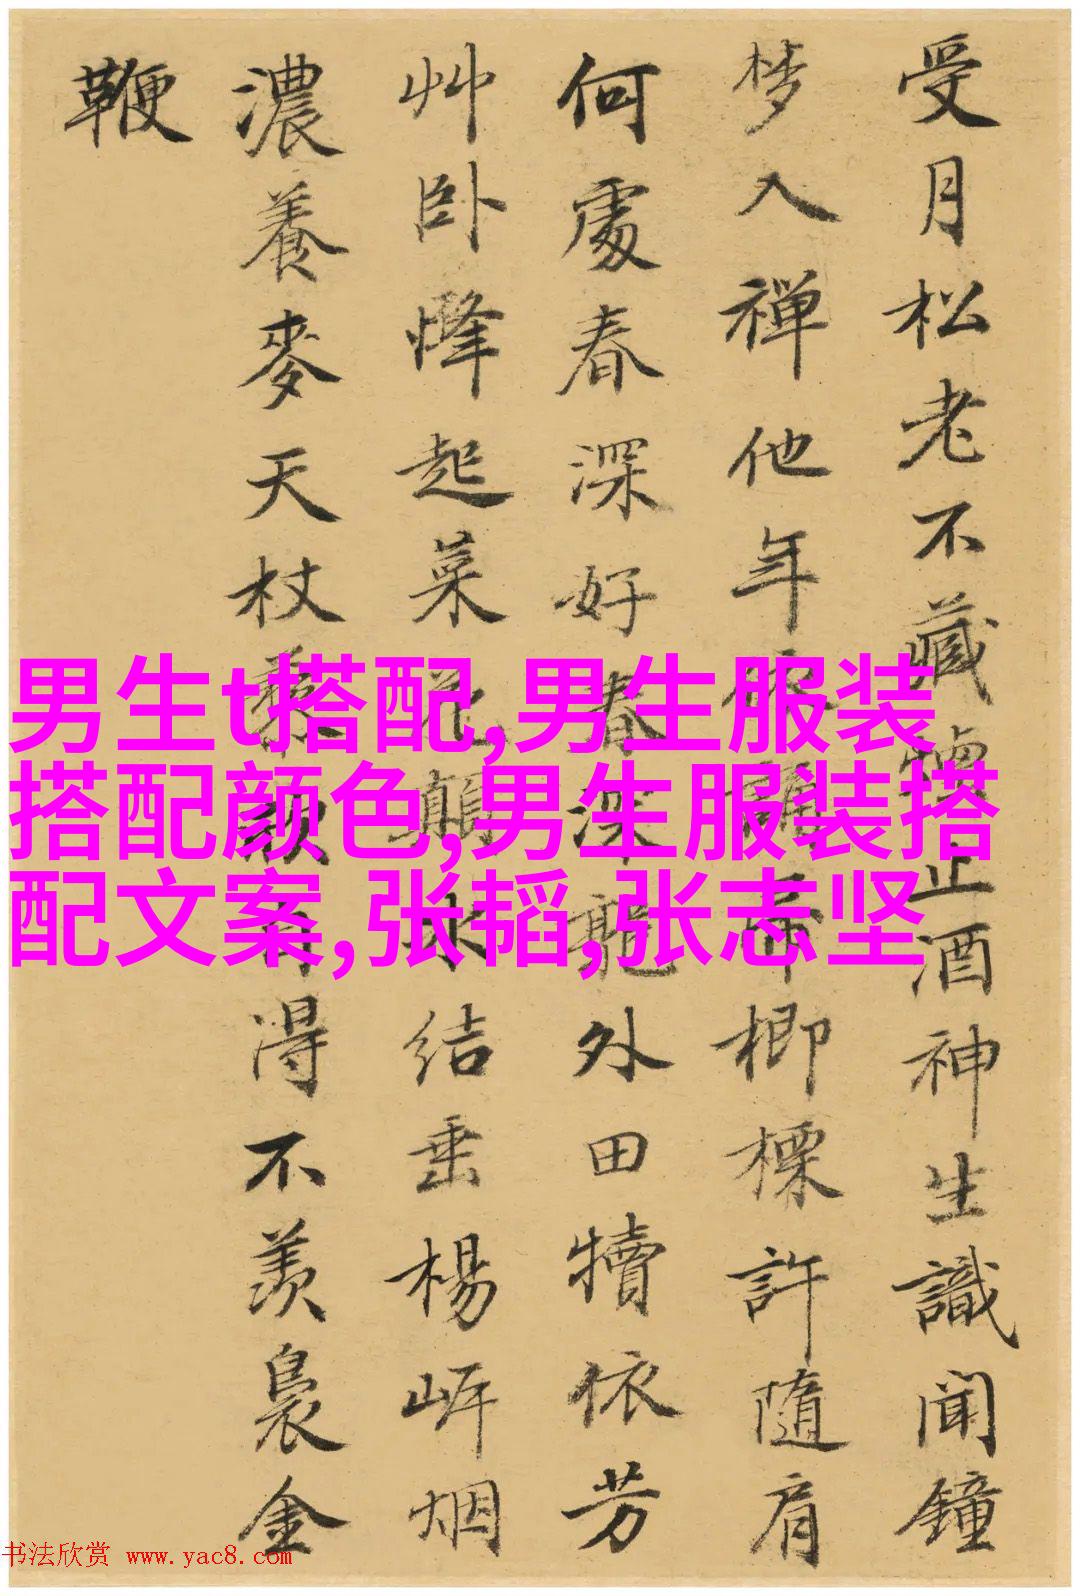 受月松老不藏止酒神生識聞鐘
梦入禅他年楖標許隨肩
何處春深好春深外田犢依芳
艸卧烽起菜花顛水結垂楊岍烟
濃養麥天杖藜歌得不羨裊金
鞭
男生t搭配,男生服装
搭配颜色,男生服装搭
配文案,张韬,张志坚
书法欣赏 www.yac8.com